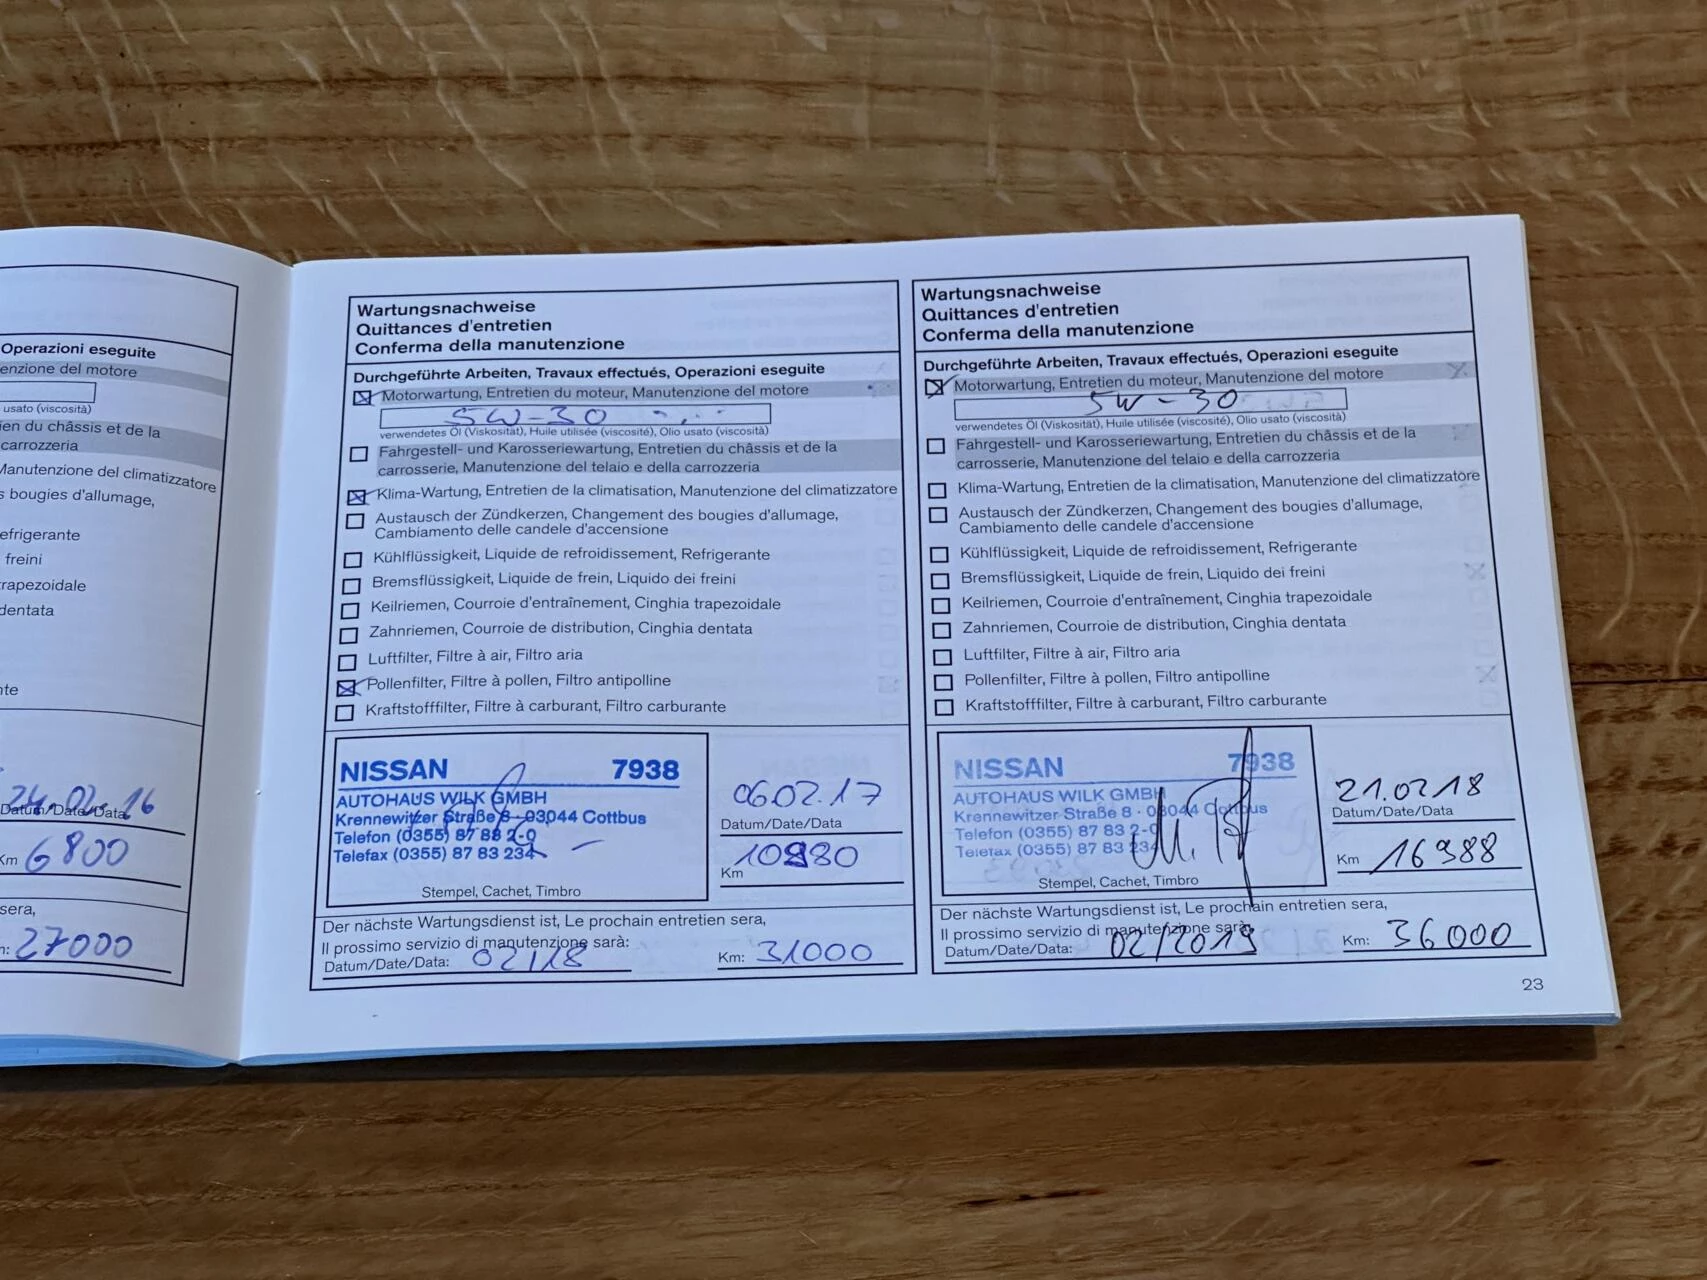 Operazioni eseguite
enzione del motore
usato (viscosità)
ien du châssis et de la
carrozzeria
Manutenzione del climatizzatore
s bougies d'allumage,
efrigerante
freini
rapezoidale
dentata
nte
24.02.16
Datum/Date/Data
Km 6800
sera,
27000
Wartungsnachweise
Quittances d'entretien
Conferma della manutenzione
Durchgeführte Arbeiten, Travaux effectués, Operazioni eseguite
Motorwartung, Entretien du moteur, Manutenzione del motore
5W-30
verwendetes Öl (Viskosität), Huile utilisée (viscosité), Olio usato (viscosità)
Fahrgestell- und Karosseriewartung, Entretien du châssis et de la
carrosserie, Manutenzione del telaio e della carrozzeria
Klima-Wartung, Entretien de la climatisation, Manutenzione del climatizzatore
Austausch der Zündkerzen, Changement des bougies d'allumage,
Cambiamento delle candele d'accensione
Kühlflüssigkeit, Liquide de refroidissement, Refrigerante
Bremsflüssigkeit, Liquide de frein, Liquido dei freini
Keilriemen, Courroie d'entraînement, Cinghia trapezoidale
Zahnriemen, Courroie de distribution, Cinghia dentata
Luftfilter, Filtre à air, Filtro aria
Pollenfilter, Filtre à pollen, Filtro antipolline
Kraftstofffilter, Filtre à carburant, Filtro carburante
NISSAN 7938
AUTOHAUS WILK GMBH
Krennewitzer Straße 8 · 03044 Cottbus
Telefon (0355) 87 83 2-0
Telefax (0355) 87 83 234
Stempel, Cachet, Timbro
06.02.17
Datum/Date/Data
Km
Der nächste Wartungsdienst ist, Le prochain entretien sera,
Il prossimo servizio di manutenzione sarà:
Datum/Date/Data: 02/18 Km: 31000
Wartungsnachweise
Quittances d'entretien
Conferma della manutenzione
Durchgeführte Arbeiten, Travaux effectués, Operazioni eseguite
Motorwartung, Entretien du moteur, Manutenzione del motore
5W-30
verwendetes Öl (Viskosität), Huile utilisée (viscosité), Olio usato (viscosità)
Fahrgestell- und Karosseriewartung, Entretien du châssis et de la
carrosserie, Manutenzione del telaio e della carrozzeria
Klima-Wartung, Entretien de la climatisation, Manutenzione del climatizzatore
Austausch der Zündkerzen, Changement des bougies d'allumage,
Cambiamento delle candele d'accensione
Kühlflüssigkeit, Liquide de refroidissement, Refrigerante
Bremsflüssigkeit, Liquide de frein, Liquido dei freini
Keilriemen, Courroie d'entraînement, Cinghia trapezoidale
Zahnriemen, Courroie de distribution, Cinghia dentata
Luftfilter, Filtre à air, Filtro aria
Pollenfilter, Filtre à pollen, Filtro antipolline
Kraftstofffilter, Filtre à carburant, Filtro carburante
NISSAN 7938
AUTOHAUS WILK GMBH
Krennewitzer Straße 8 · 03044 Cottbus
Telefon (0355) 87 83 2-0
Telefax (0355) 87 83 234
Stempel, Cachet, Timbro
21.02.18
Datum/Date/Data
Km 16988
Der nächste Wartungsdienst ist, Le prochain entretien sera,
Il prossimo servizio di manutenzione sarà:
Datum/Date/Data: 02/2019 Km: 36000
23